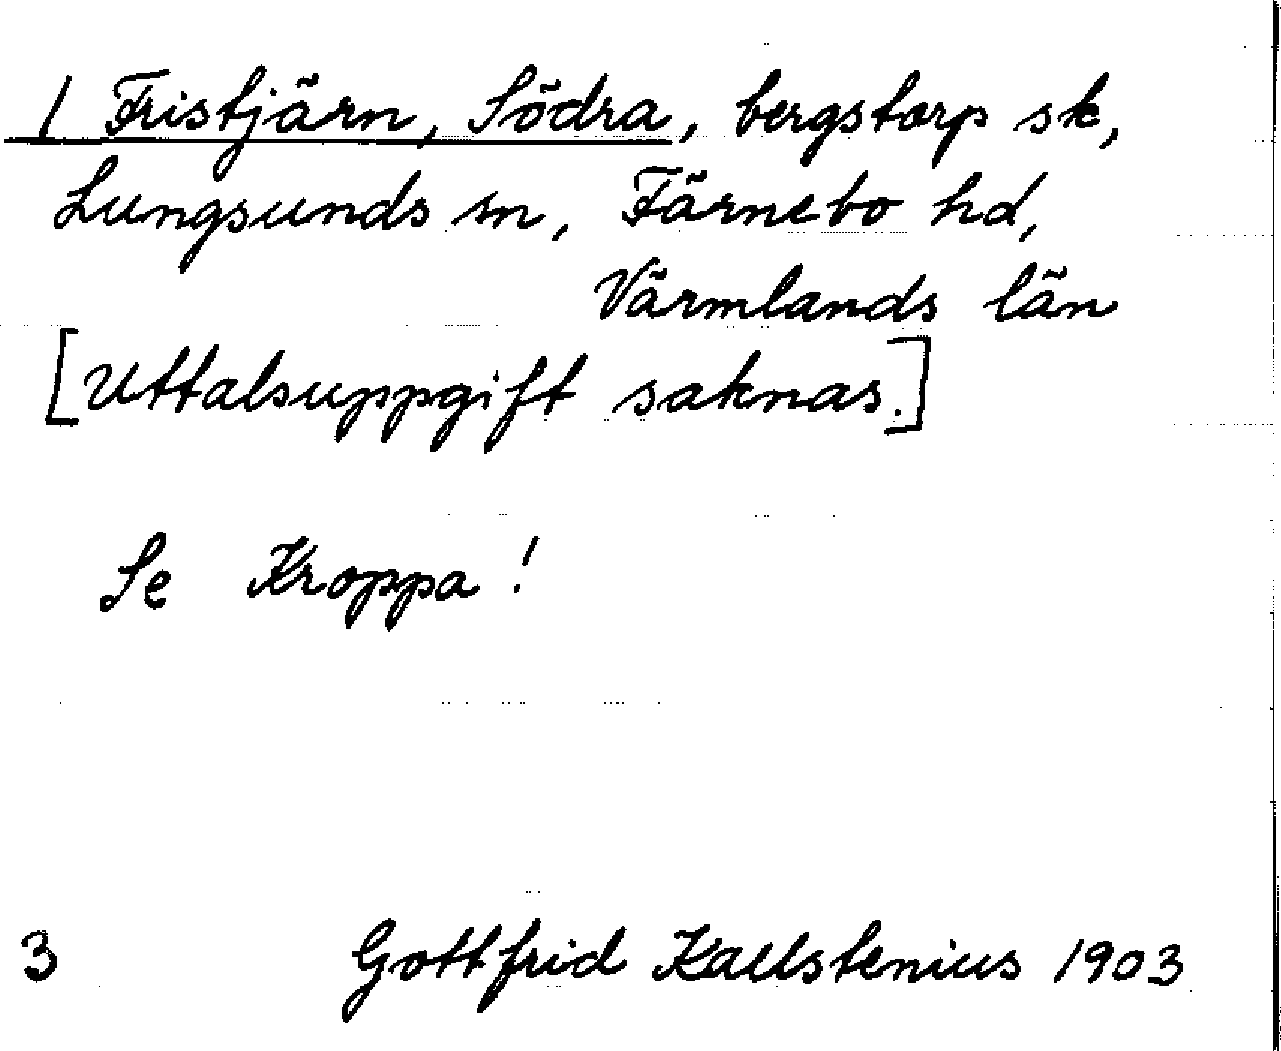 / Fristjärn, Södra, bergstorp sk,
Lungsunds sn, Färnebo hd,
Värmlands län
[Uttalsuppgift saknas.]
Se Kroppa!
3 Gottfrid Kallstenius 1903